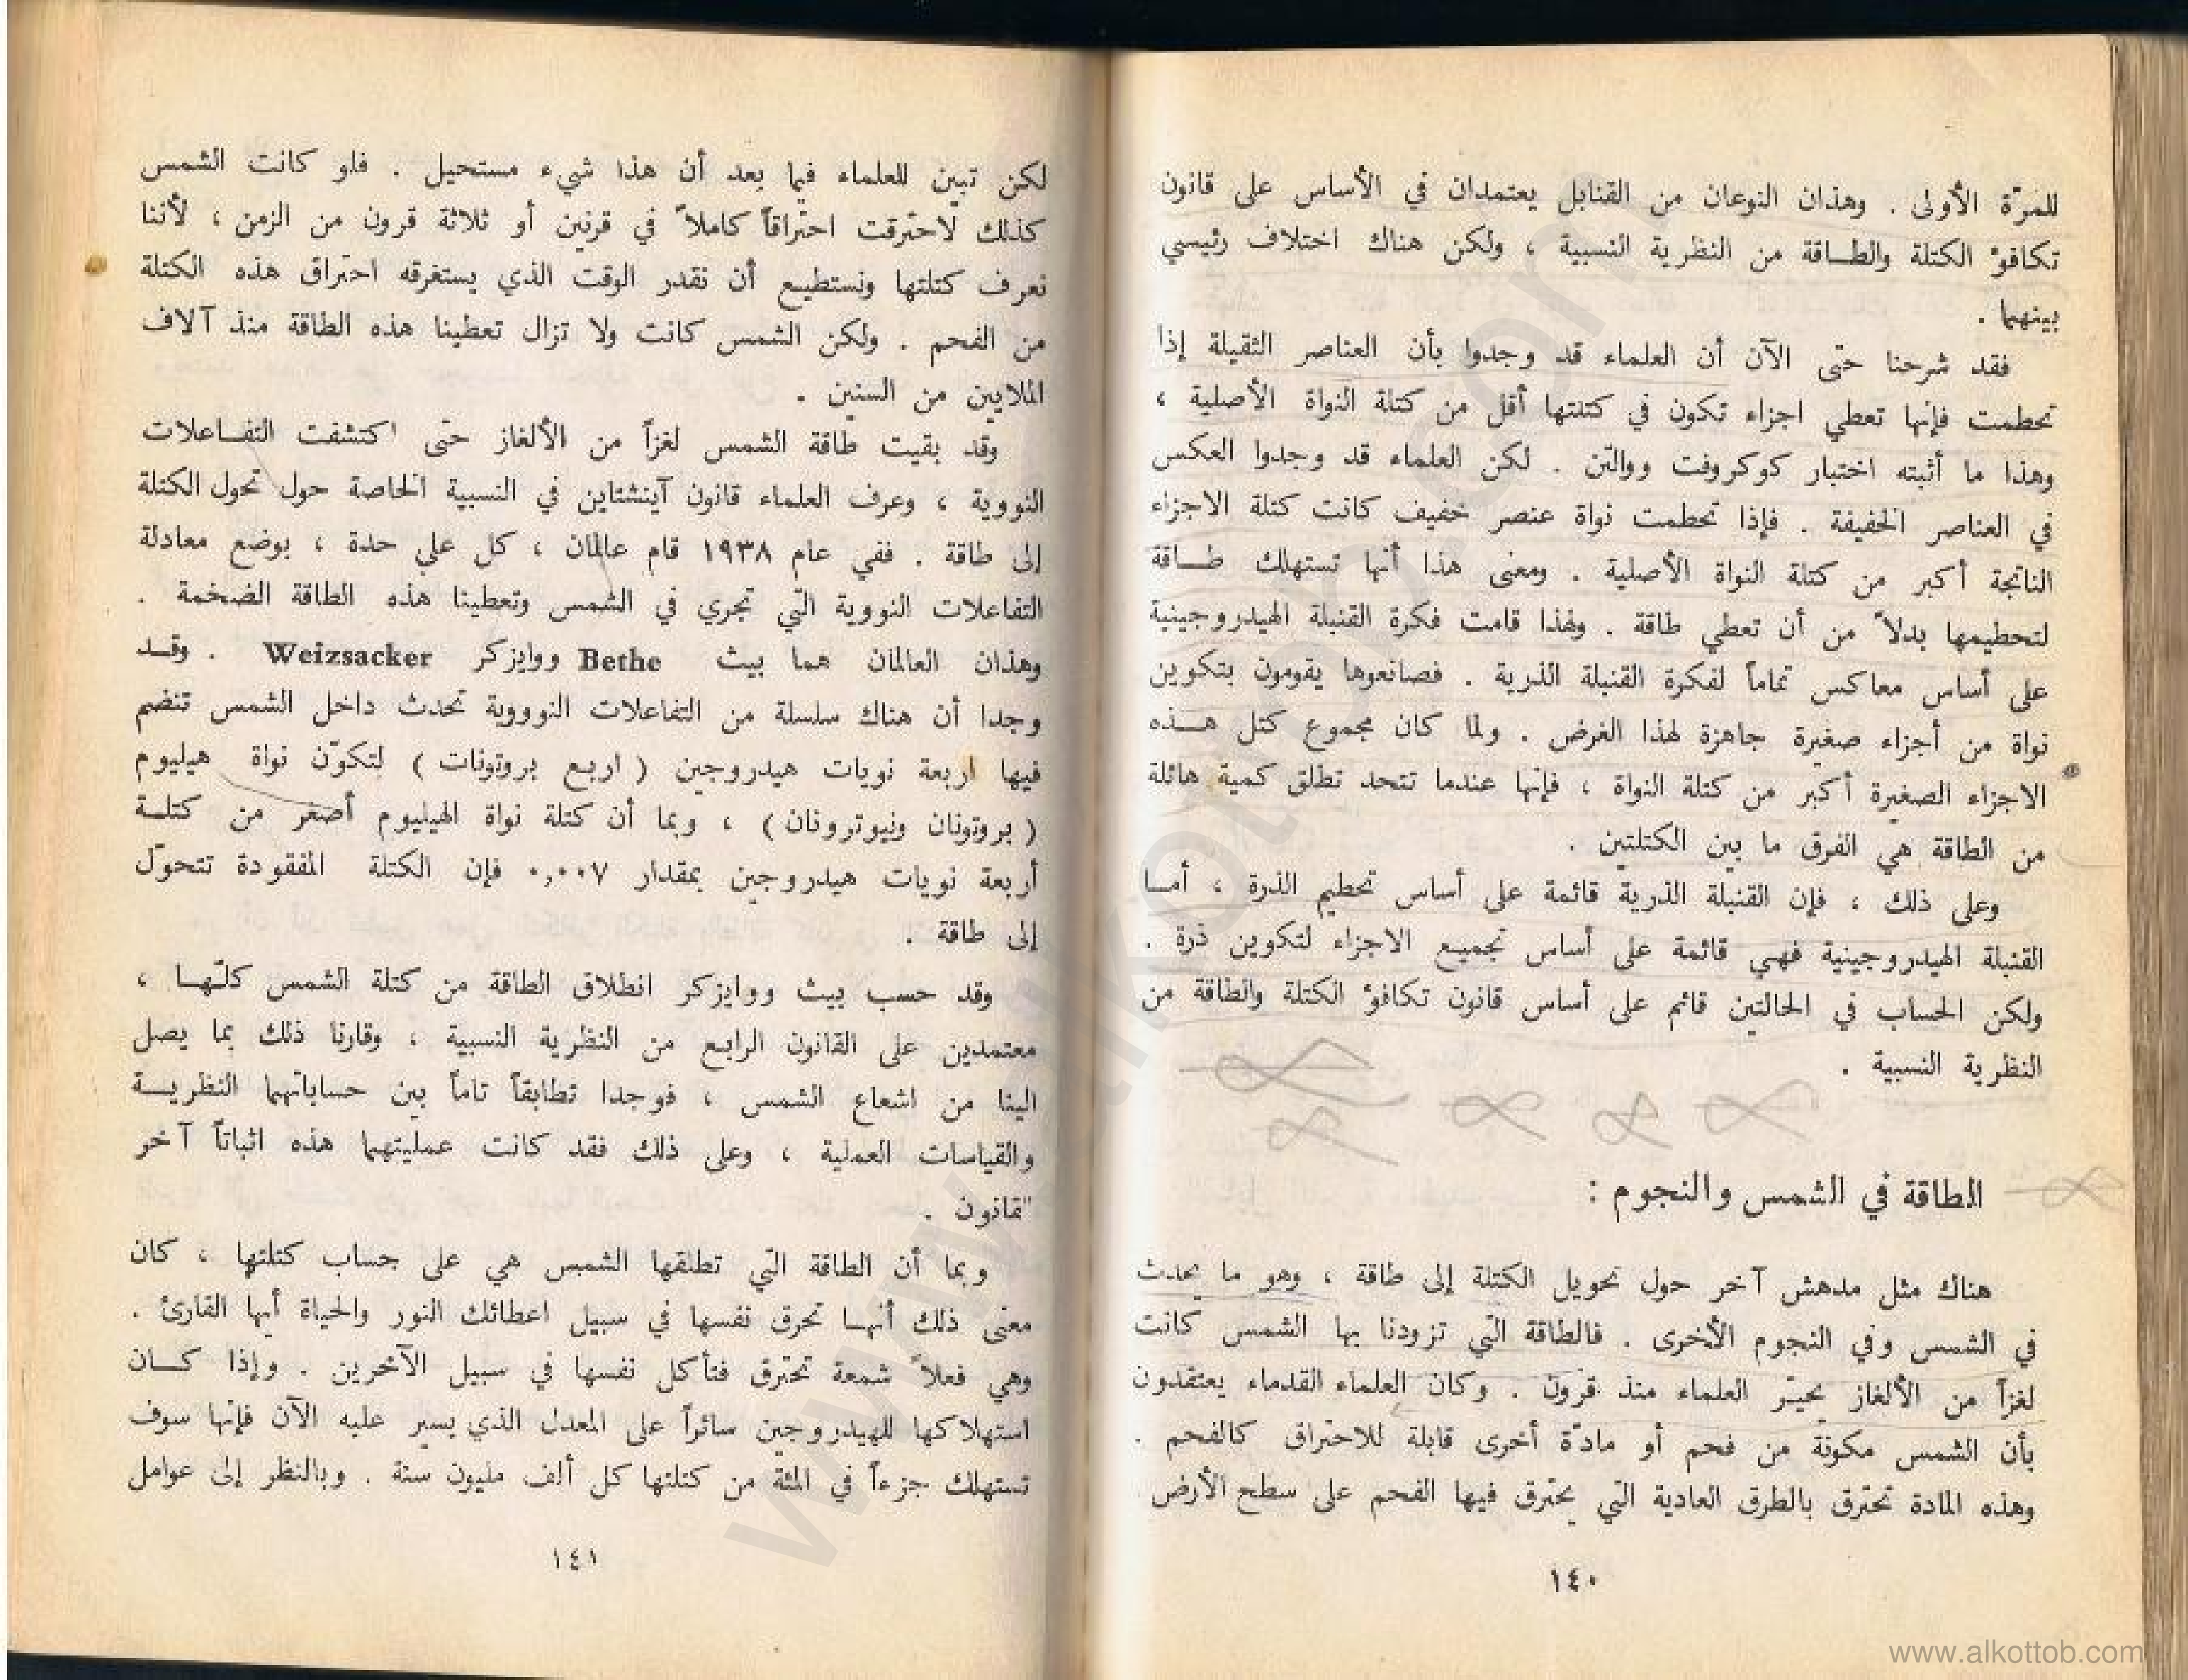 للمرّة الأولى . وهذان النوعان من القنابل يعتمدان في الأساس على قانون
تكافؤ الكتلة والطـاقة من النظرية النسبية ، ولكن هناك اختلاف رئيسي
بينهما .
فقد شرحنا حتى الآن أن العلماء قد وجدوا بأن العناصر الثقيلة إذا
تحطمت فإنها تعطي اجزاء تكون في كتلتها أقل من كتلة النواة الأصلية ،
وهذا ما أثبته اختبار كوكروفت ووالتن . لكن العلماء قد وجدوا العكس
في العناصر الخفيفة . فإذا تحطمت نواة عنصر خفيف كانت كتلة الاجزاء
الناتجة أكبر من كتلة النواة الأصلية . ومعنى هذا أنها تستهلك طـاقة
لتحطيمها بدلاً من أن تعطي طاقة . ولهذا قامت فكرة القنبلة الهيدروجينية
على أساس معاكس تماماً لفكرة القنبلة الذرية . فصانعوها يقومون بتكوين
نواة من أجزاء صغيرة جاهزة لهذا الغرض . ولما كان مجموع كتل هـذه
الاجزاء الصغيرة أكبر من كتلة النواة ، فإنها عندما تتحد تطلق كمية هائلة
من الطاقة هي الفرق ما بين الكتلتين .
وعلى ذلك ، فإن القنبلة الذرية قائمة على أساس تحطيم الذرة ، أمـا
القنبلة الهيدروجينية فهي قائمة على أساس تجميع الاجزاء لتكوين ذرة .
ولكن الحساب في الحالتين قائم على أساس قانون تكافؤ الكتلة والطاقة من
النظرية النسبية .
الطاقة في الشمس والنجوم :
هناك مثل مدهش آخر حول تحويل الكتلة إلى طاقة ، وهو ما يحدث
في الشمس وفي النجوم الأخرى . فالطاقة التي تزودنا بها الشمس كانت
لغزاً من الألغاز يحيّر العلماء منذ قرون . وكان العلماء القدماء يعتقدون
بأن الشمس مكونة من فحم أو مادّة أخرى قابلة للاحتراق كالفحم .
وهذه المادة تحترق بالطرق العادية التي يحترق فيها الفحم على سطح الأرض
١٤٠
لكن تبين للعلماء فيما بعد أن هذا شيء مستحيل . فلو كانت الشمس
كذلك لاحترقت احتراقاً كاملاً في قرنين أو ثلاثة قرون من الزمن ، لأننا
نعرف كتلتها ونستطيع أن نقدر الوقت الذي يستغرقه احتراق هذه الكتلة
من الفحم . ولكن الشمس كانت ولا تزال تعطينا هذه الطاقة منذ آلاف
الملايين من السنين .
وقد بقيت طاقة الشمس لغزاً من الألغاز حتى اكتشفت التفـاعلات
النووية ، وعرف العلماء قانون آينشتاين في النسبية الخاصة حول تحول الكتلة
إلى طاقة . ففي عام ١٩٣٨ قام عالمان ، كل على حدة ، بوضع معادلة
التفاعلات النووية التي تجري في الشمس وتعطينا هذه الطاقة الضخمة .
وهذان العالمان هما بيث Bethe ووايزكر Weizsacker . وقـد
وجدا أن هناك سلسلة من التفاعلات النوووية تحدث داخل الشمس تنضم
فيها اربعة نويات هيدروجين ( اربع بروتونات ) لتكوّن نواة هيليوم
( بروتونان ونيوترونان ) ، وبما أن كتلة نواة الهيليوم أصغر من كتلـة
أربعة نويات هيدروجين بمقدار ٠,٠٠٧ فإن الكتلة المفقودة تتحوّل
إلى طاقة .
وقد حسب بيث ووايزكر انطلاق الطاقة من كتلة الشمس كلّهـا ،
معتمدين على القانون الرابع من النظرية النسبية ، وقارنا ذلك بما يصل
الينا من اشعاع الشمس ، فوجدا تطابقاً تاماً بين حساباتهما النظريـة
والقياسات العملية ، وعلى ذلك فقد كانت عمليتهما هذه اثباتاً آخر
للقانون .
وبما أن الطاقة التي تطلقها الشمس هي على حساب كتلتها ، كان
معنى ذلك أنهـا تحرق نفسها في سبيل اعطائك النور والحياة أيها القارئ .
وهي فعلاً شمعة تحترق فتأكل نفسها في سبيل الآخرين . وإذا كـان
استهلاكها للهيدروجين سائراً على المعدل الذي يسير عليه الآن فإنها سوف
تستهلك جزءاً في المئة من كتلتها كل ألف مليون سنة . وبالنظر إلى عوامل
١٤١
www.alkottob.com
www.alkottob.com